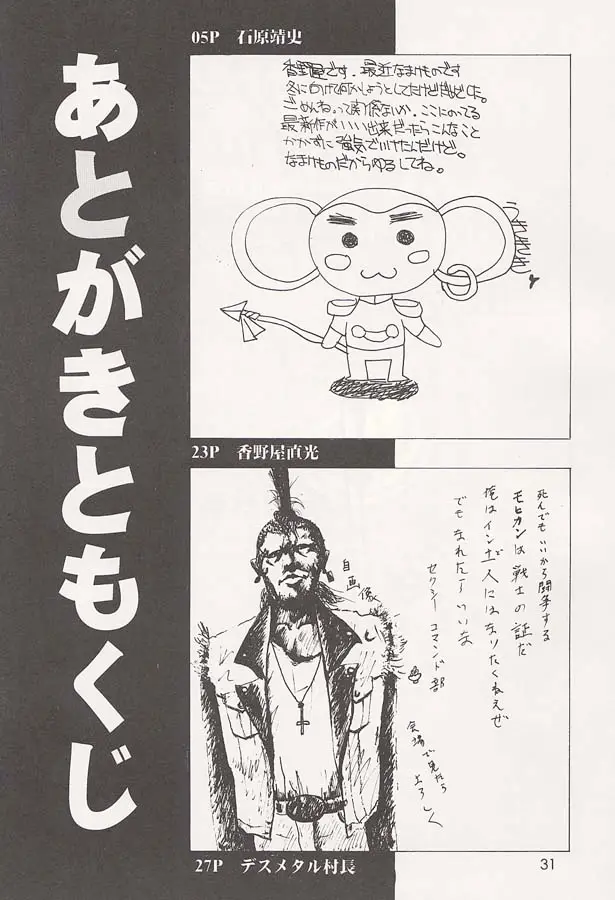 あとがきともくじ
05P 石原靖史
香野屋です。最近なまけものです
冬に向けて何かしようとしてたけどだめでした。
ごめんね。って関係ないか。ここにのってる
最新作がいい出来だったらこんなこと
かかずに強気でいけたんだけど。
なまけものだからゆるしてね。
うききき
23P 香野屋直光
死んでもいいから闘争する
モヒカンは戦士の証だ
俺はインド人にはなりたくねえぜ
でもまれたりいいな
セクシーコマンドー部
自画像
会場で見たら
よろしく
27P デスメタル村長
31